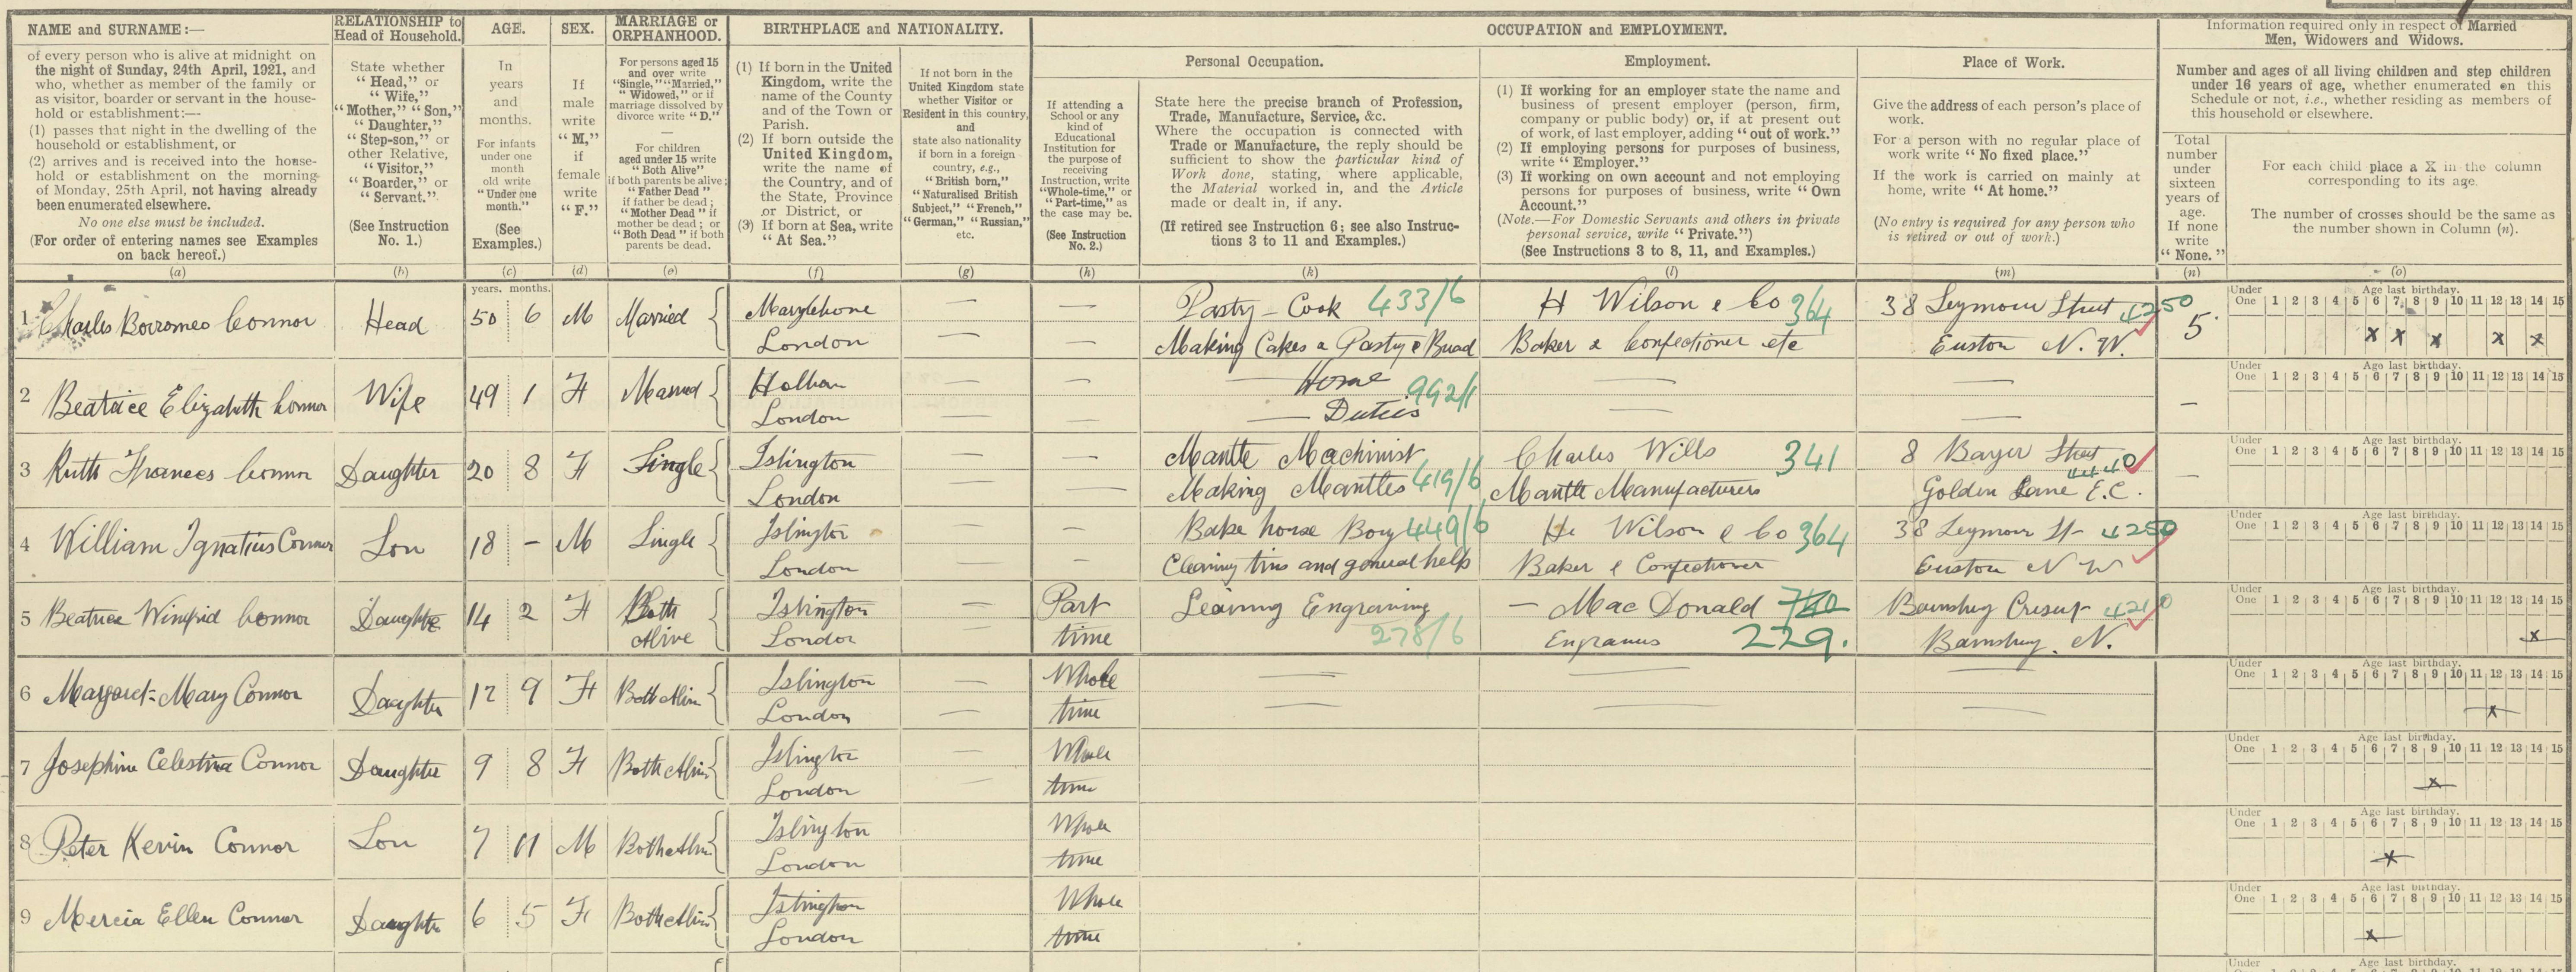 NAME and SURNAME:—
of every person who is alive at midnight on
the night of Sunday, 24th April, 1921, and
who, whether as member of the family or
as visitor, boarder or servant in the house-
hold or establishment:—
(1) passes that night in the dwelling of the
household or establishment, or
(2) arrives and is received into the house-
hold or establishment on the morning
of Monday, 25th April, not having already
been enumerated elsewhere.
No one else must be included.
(For order of entering names see Examples
on back hereof.)
(a)
RELATIONSHIP to
Head of Household.
State whether
"Head," or
"Wife,"
"Mother," "Son,"
"Daughter,"
"Step-son," or
other Relative,
"Visitor,"
"Boarder," or
"Servant."
(See Instruction
No. 1.)
(b)
AGE.
In
years
and
months.
For infants
under one
month
old write
"Under one
month."
(See
Examples.)
(c)
SEX.
If
male
write
"M,"
if
female
write
"F."
(d)
MARRIAGE or
ORPHANHOOD.
For persons aged 15
and over write
"Single," "Married,"
"Widowed," or if
marriage dissolved by
divorce write "D."
—
For children
aged under 15 write
"Both Alive"
if both parents be alive;
"Father Dead"
if father be dead;
"Mother Dead" if
mother be dead; or
"Both Dead" if both
parents be dead.
(e)
BIRTHPLACE and NATIONALITY.
(1) If born in the United
Kingdom, write the
name of the County
and of the Town or
Parish.
(2) If born outside the
United Kingdom,
write the name of
the Country, and of
the State, Province
or District, or
(3) If born at Sea, write
"At Sea."
(f)
If not born in the
United Kingdom state
whether Visitor or
Resident in this country,
and
state also nationality
if born in a foreign
country, e.g.,
"British born,"
"Naturalised British
Subject," "French,"
"German," "Russian,"
etc.
(g)
OCCUPATION and EMPLOYMENT.
If attending a
School or any
kind of
Educational
Institution for
the purpose of
receiving
Instruction, write
"Whole-time," or
"Part-time," as
the case may be.
(See Instruction
No. 2.)
(h)
Personal Occupation.
State here the precise branch of Profession,
Trade, Manufacture, Service, &c.
Where the occupation is connected with
Trade or Manufacture, the reply should be
sufficient to show the particular kind of
Work done, stating, where applicable,
the Material worked in, and the Article
made or dealt in, if any.
(If retired see Instruction 6; see also Instruc-
tions 3 to 11 and Examples.)
(k)
Employment.
(1) If working for an employer state the name and
business of present employer (person, firm,
company or public body) or, if at present out
of work, of last employer, adding "out of work."
(2) If employing persons for purposes of business,
write "Employer."
(3) If working on own account and not employing
persons for purposes of business, write "Own
Account."
(Note.—For Domestic Servants and others in private
personal service, write "Private.")
(See Instructions 3 to 8, 11, and Examples.)
(l)
Place of Work.
Give the address of each person's place of
work.
For a person with no regular place of
work write "No fixed place."
If the work is carried on mainly at
home, write "At home."
(No entry is required for any person who
is retired or out of work.)
(m)
Information required only in respect of Married
Men, Widowers and Widows.
Number and ages of all living children and step children
under 16 years of age, whether enumerated on this
Schedule or not, i.e., whether residing as members of
this household or elsewhere.
Total
number
under
sixteen
years of
age.
If none
write
"None."
(n)
For each child place a X in the column
corresponding to its age.
The number of crosses should be the same as
the number shown in Column (n).
(o)
years. months.
1 Charles Borromeo Connor Head 50 6 M Married Marylebone — — Pastry-Cook 433/6 H Wilson & Co 364 38 Seymour Street 4250 5
London — Making Cakes & Pastry & Bread Baker & Confectioner etc Euston N.W.
Under One 1 2 3 4 5 6 7 8 9 10 11 12 13 14 15 Age last birthday.
x x x x x
2 Beatrice Elizabeth Connor Wife 49 1 F Married Holborn — — Home 992/1 — —
London — — Duties — — —
Under One 1 2 3 4 5 6 7 8 9 10 11 12 13 14 15 Age last birthday.
3 Ruth Frances Connor Daughter 20 8 F Single Islington — — Mantle Machinist Charles Wills 341 8 Bayer Street 4440
London — — Making Mantles 419/6 Mantle Manufacturers Golden Lane E.C. —
Under One 1 2 3 4 5 6 7 8 9 10 11 12 13 14 15 Age last birthday.
4 William Ignatius Connor Son 18 - M Single Islington — — Bake house Boy 449/6 H. Wilson & Co 364 38 Seymour St 4250
London — — Cleaning tins and general help Baker & Confectioner Euston N W
Under One 1 2 3 4 5 6 7 8 9 10 11 12 13 14 15 Age last birthday.
5 Beatrice Winifrid Connor Daughter 14 2 F Both Islington — Part Learning Engraving — Mac Donald 740 Barnsbury Cresent 4210
Alive London — time 278/6 Engravers 229. Barnsbury. N.
Under One 1 2 3 4 5 6 7 8 9 10 11 12 13 14 15 Age last birthday.
x
6 Margaret-Mary Connor Daughter 12 9 F Both Alive Islington — Whole — — —
London — time — — —
Under One 1 2 3 4 5 6 7 8 9 10 11 12 13 14 15 Age last birthday.
x
7 Josephine Celestina Connor Daughter 9 8 F Both Alive Islington — Whole
London — time
Under One 1 2 3 4 5 6 7 8 9 10 11 12 13 14 15 Age last birthday.
x
8 Peter Kevin Connor Son 7 11 M Both Alive Islington Whole
London time
Under One 1 2 3 4 5 6 7 8 9 10 11 12 13 14 15 Age last birthday.
x
9 Mercia Ellen Connor Daughter 6 5 F Both Alive Islington Whole
London time
Under One 1 2 3 4 5 6 7 8 9 10 11 12 13 14 15 Age last birthday.
x
Under Age last birthday.